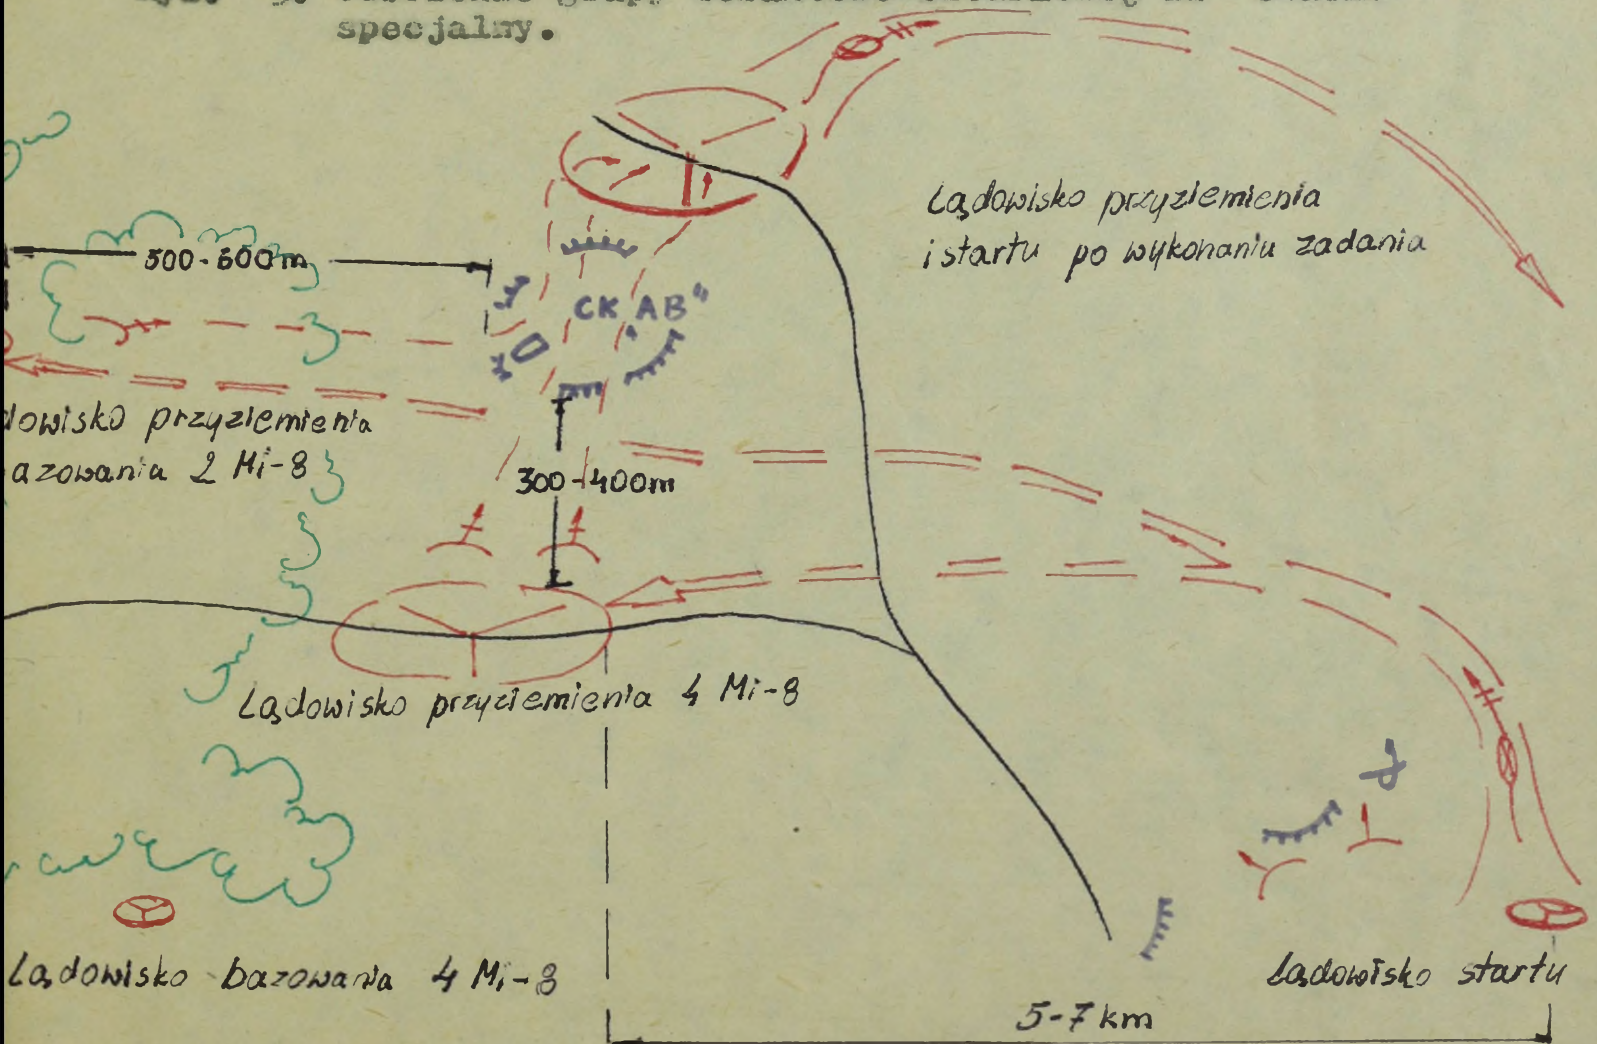 specjalny.
Lądowisko przyziemienia
i startu po wykonaniu zadania
500-600m
CK AB"
dowisko przyziemienia
azowania 2 Mi-8
300-400m
Lądowisko przyziemienia 4 Mi-8
Lądowisko bazowania 4 Mi-8
Lądowisko startu
5-7 km